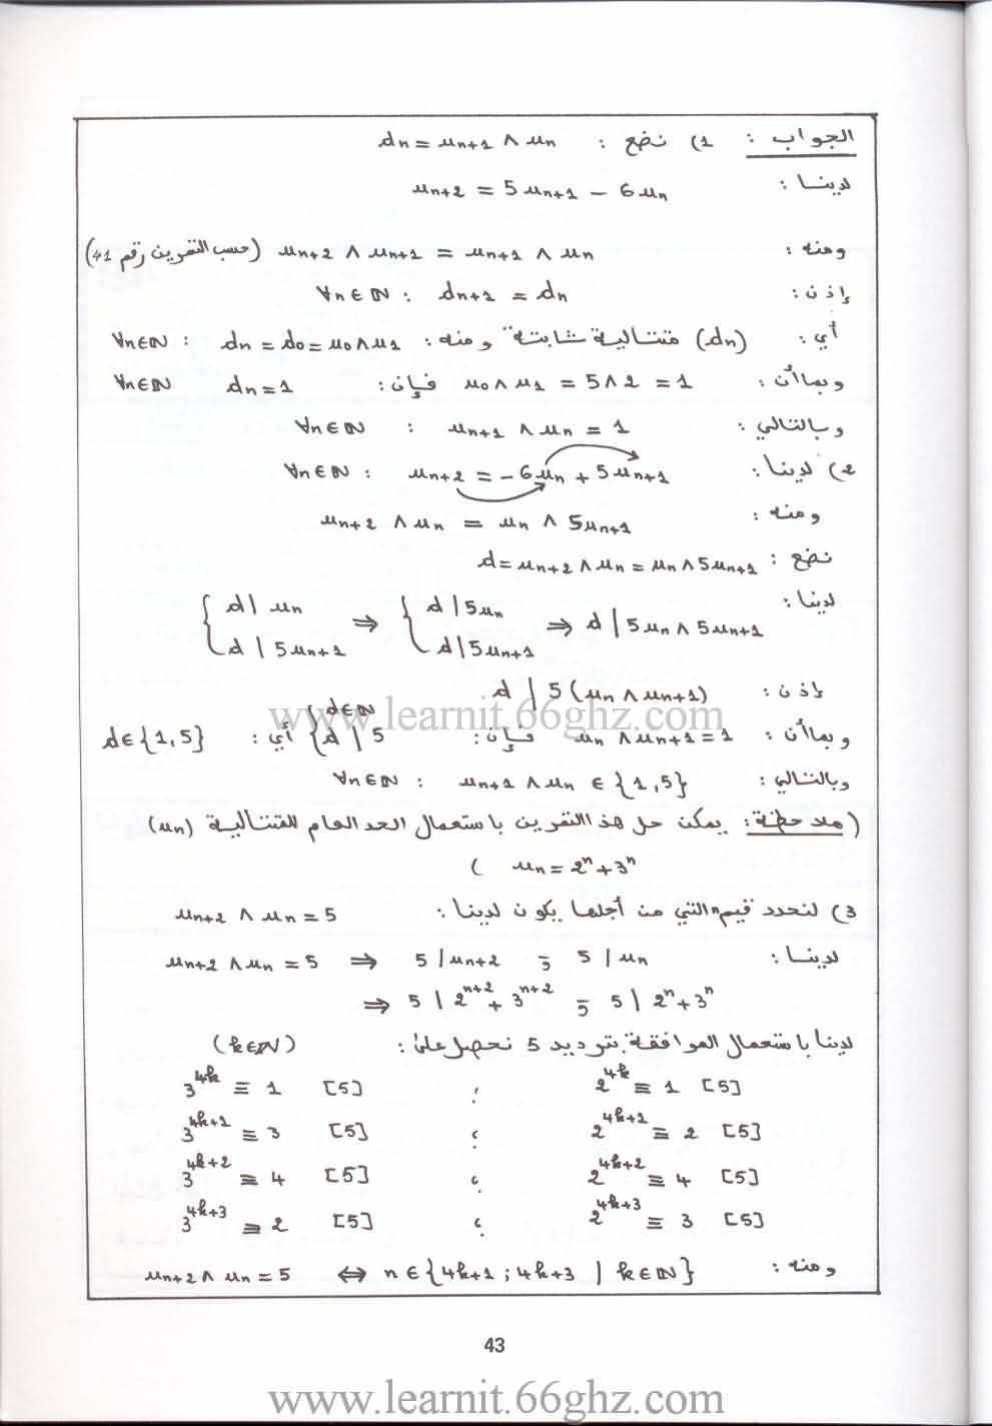 الجواب : 1) نضع : dn = un+1 ∧ un
لدينا : un+2 = 5un+1 − 6un
ومنه : un+2 ∧ un+1 = un+1 ∧ un (حسب التمرين رقم 41)
إذن : ∀n∈ℕ : dn+1 = dn
أي : (dn) متتالية ثابتة ومنه : ∀n∈ℕ : dn = d0 = u0∧u1
وبما أن : u0∧u1 = 5∧2 = 1 فإن : dn=1 ∀n∈ℕ
وبالتالي : ∀n∈ℕ : un+1 ∧ un = 1
2) لدينا : ∀n∈ℕ : un+2 = −6un + 5un+1
ومنه : un+2 ∧ un = un ∧ 5un+1
نضع : d = un+2 ∧ un = un ∧ 5un+1
لدينا : { d | un ; d | 5un+1 ⇒ { d | 5un ; d | 5un+1 ⇒ d | 5un ∧ 5un+1
إذن : d | 5(un ∧ un+1)
وبما أن : un ∧ un+1 = 1 فإن : { d∈ℕ ; d | 5 أي : d∈{1,5}
وبالتالي : ∀n∈ℕ : un+1 ∧ un ∈ {1,5}
(ملاحظة : يمكن حل هذا التمرين باستعمال الحد العام للمتتالية (un)
un = 2^n + 3^n )
3) لنحدد قيم n التي من أجلها يكون لدينا : un+2 ∧ un = 5
لدينا : un+2 ∧ un = 5 ⇒ 5 | un+2 و 5 | un
⇒ 5 | 2^n+2 + 3^n+2 و 5 | 2^n + 3^n
لدينا باستعمال الموافقة بترديد 5 نحصل على : (k∈ℕ)
2^4k ≡ 1 [5] ؛ 3^4k ≡ 1 [5]
2^4k+1 ≡ 2 [5] ؛ 3^4k+1 ≡ 3 [5]
2^4k+2 ≡ 4 [5] ؛ 3^4k+2 ≡ 4 [5]
2^4k+3 ≡ 3 [5] ؛ 3^4k+3 ≡ 2 [5]
ومنه : un+2 ∧ un = 5 ⇔ n∈{4k+1 ; 4k+3 | k∈ℕ}
43
www.learnit.66ghz.com
www.learnit.66ghz.com